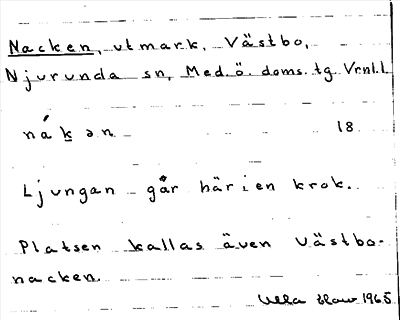 Nacken, utmark, Västbo,
Njurunda sn, Med. ö. doms. tg Vrnl. l.
nák̲ən 18
Ljungan går här i en krok.
Platsen kallas även Västbo-
nacken.
Ulla 1965